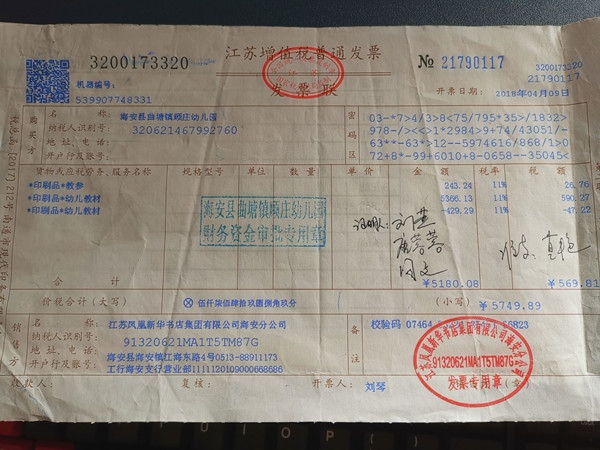 3200173320
江苏增值税普通发票
发票联
№ 21790117
3200173320
21790117
机器编号:
539907748331
开票日期: 2018年04月09日
购买方
名称: 海安县曲塘镇顾庄幼儿园
纳税人识别号: 320621467992760
地址、电话:
开户行及账号:
密码区
03-*7>4/3>8<75/795*35>/1832>
978-/><<>1*2984>9+74/43051/-
63**-63*>12--5974616/868/1>0
72+8*-99+6010+8-0658--35045<
货物或应税劳务、服务名称 规格型号 单位 数量 单价 金额 税率 税额
*印刷品*教参 243.24 11% 26.76
*印刷品*幼儿教材 5366.13 11% 590.27
*印刷品*幼儿教材 -429.29 11% -47.22
海安县曲塘镇顾庄幼儿园
财务资金审批专用章
合计 ¥5180.08 ¥569.81
价税合计（大写） ⊗ 伍仟柒佰肆拾玖圆捌角玖分 （小写） ¥5749.89
销售方
名称: 江苏凤凰新华书店集团有限公司海安分公司
纳税人识别号: 91320621MA1T5TM87G
地址、电话: 海安县海安镇江海东路4号0513-88911173
开户行及账号: 工行海安支行营业部1111120109000068686
备注
校验码 07464
56823
江苏凤凰新华书店集团有限公司海安分公司
91320621MA1T5TM87G
发票专用章
收款人: 复核: 开票人: 刘琴 （章）